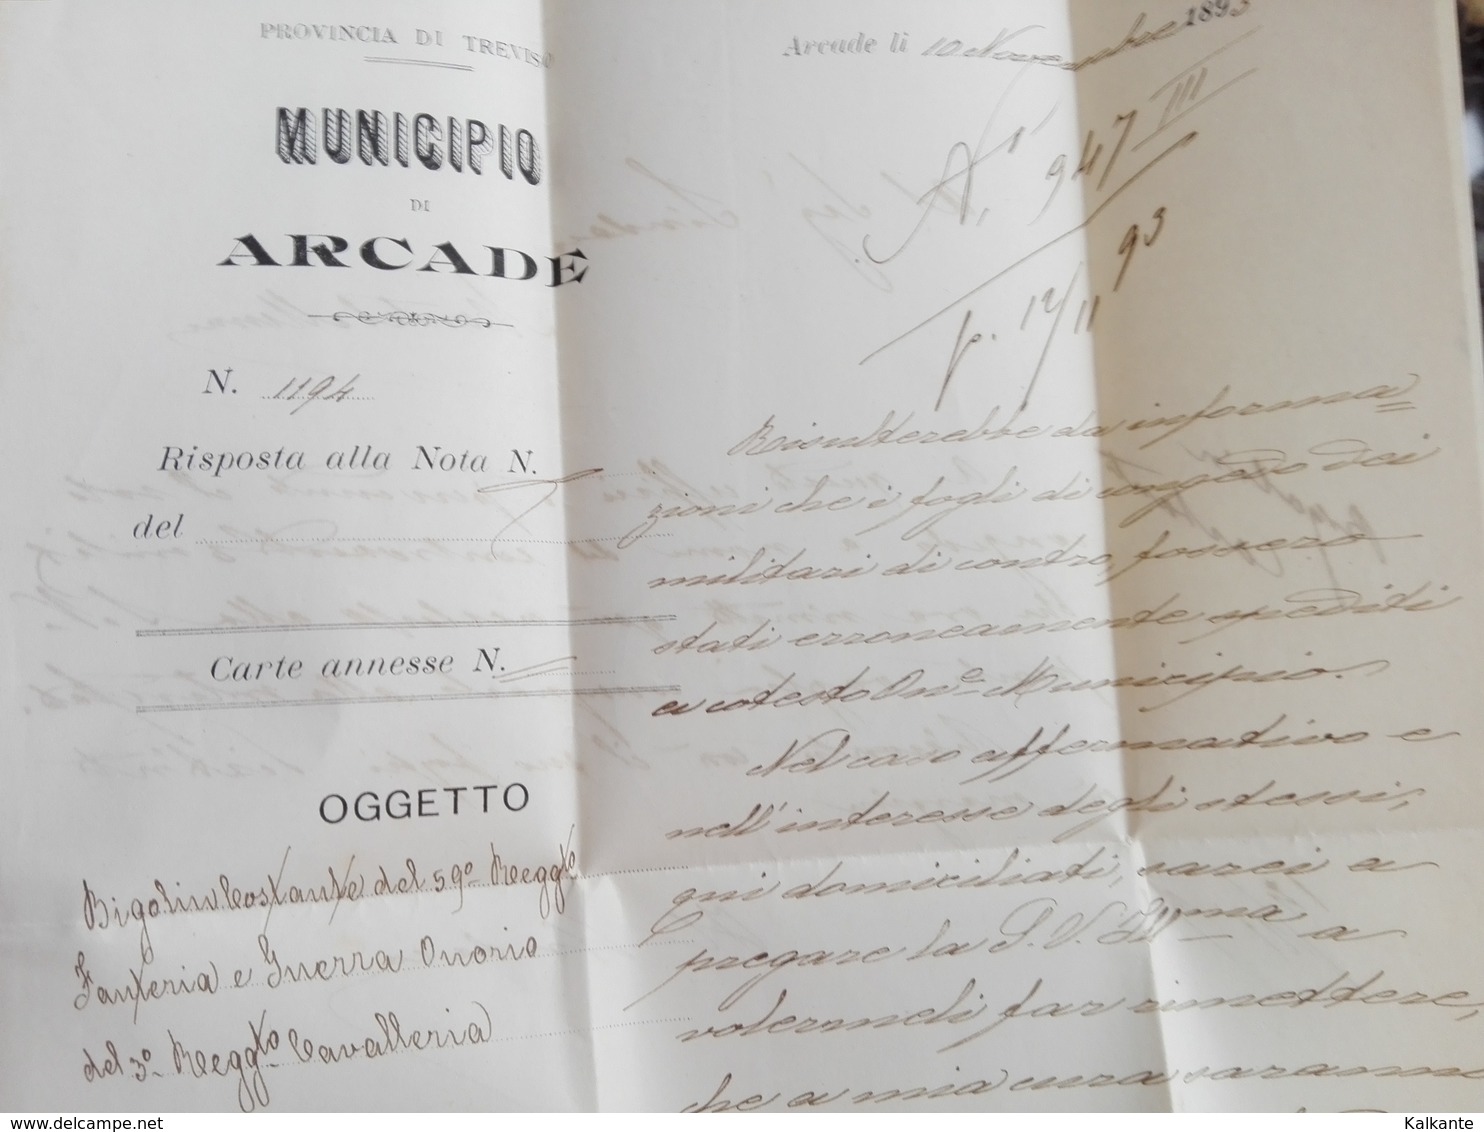 PROVINCIA DI TREVISO
MUNICIPIO
DI
ARCADE
N. 1194
Risposta alla Nota N.
del
Carte annesse N.
OGGETTO
Bigolin Costante del 59° Regg.to
Fanteria e Guerra Onorio
del 3° Regg.to Cavalleria
Arcade li 10 Novembre 1893
N. 947 III
p. 12/11 93
Risulterebbe da informa=
zioni che i fogli di congedo dei
militari di contro, fossero
stati erroneamente spediti
a cotesto On.e Municipio.
Nel caso affermativo e
nell'interesse degli stessi,
qui domiciliati, sarei a
pregare la S. V. Ill.ma a
volermeli far rimettere,
che a mia cura saranno
Kalkante